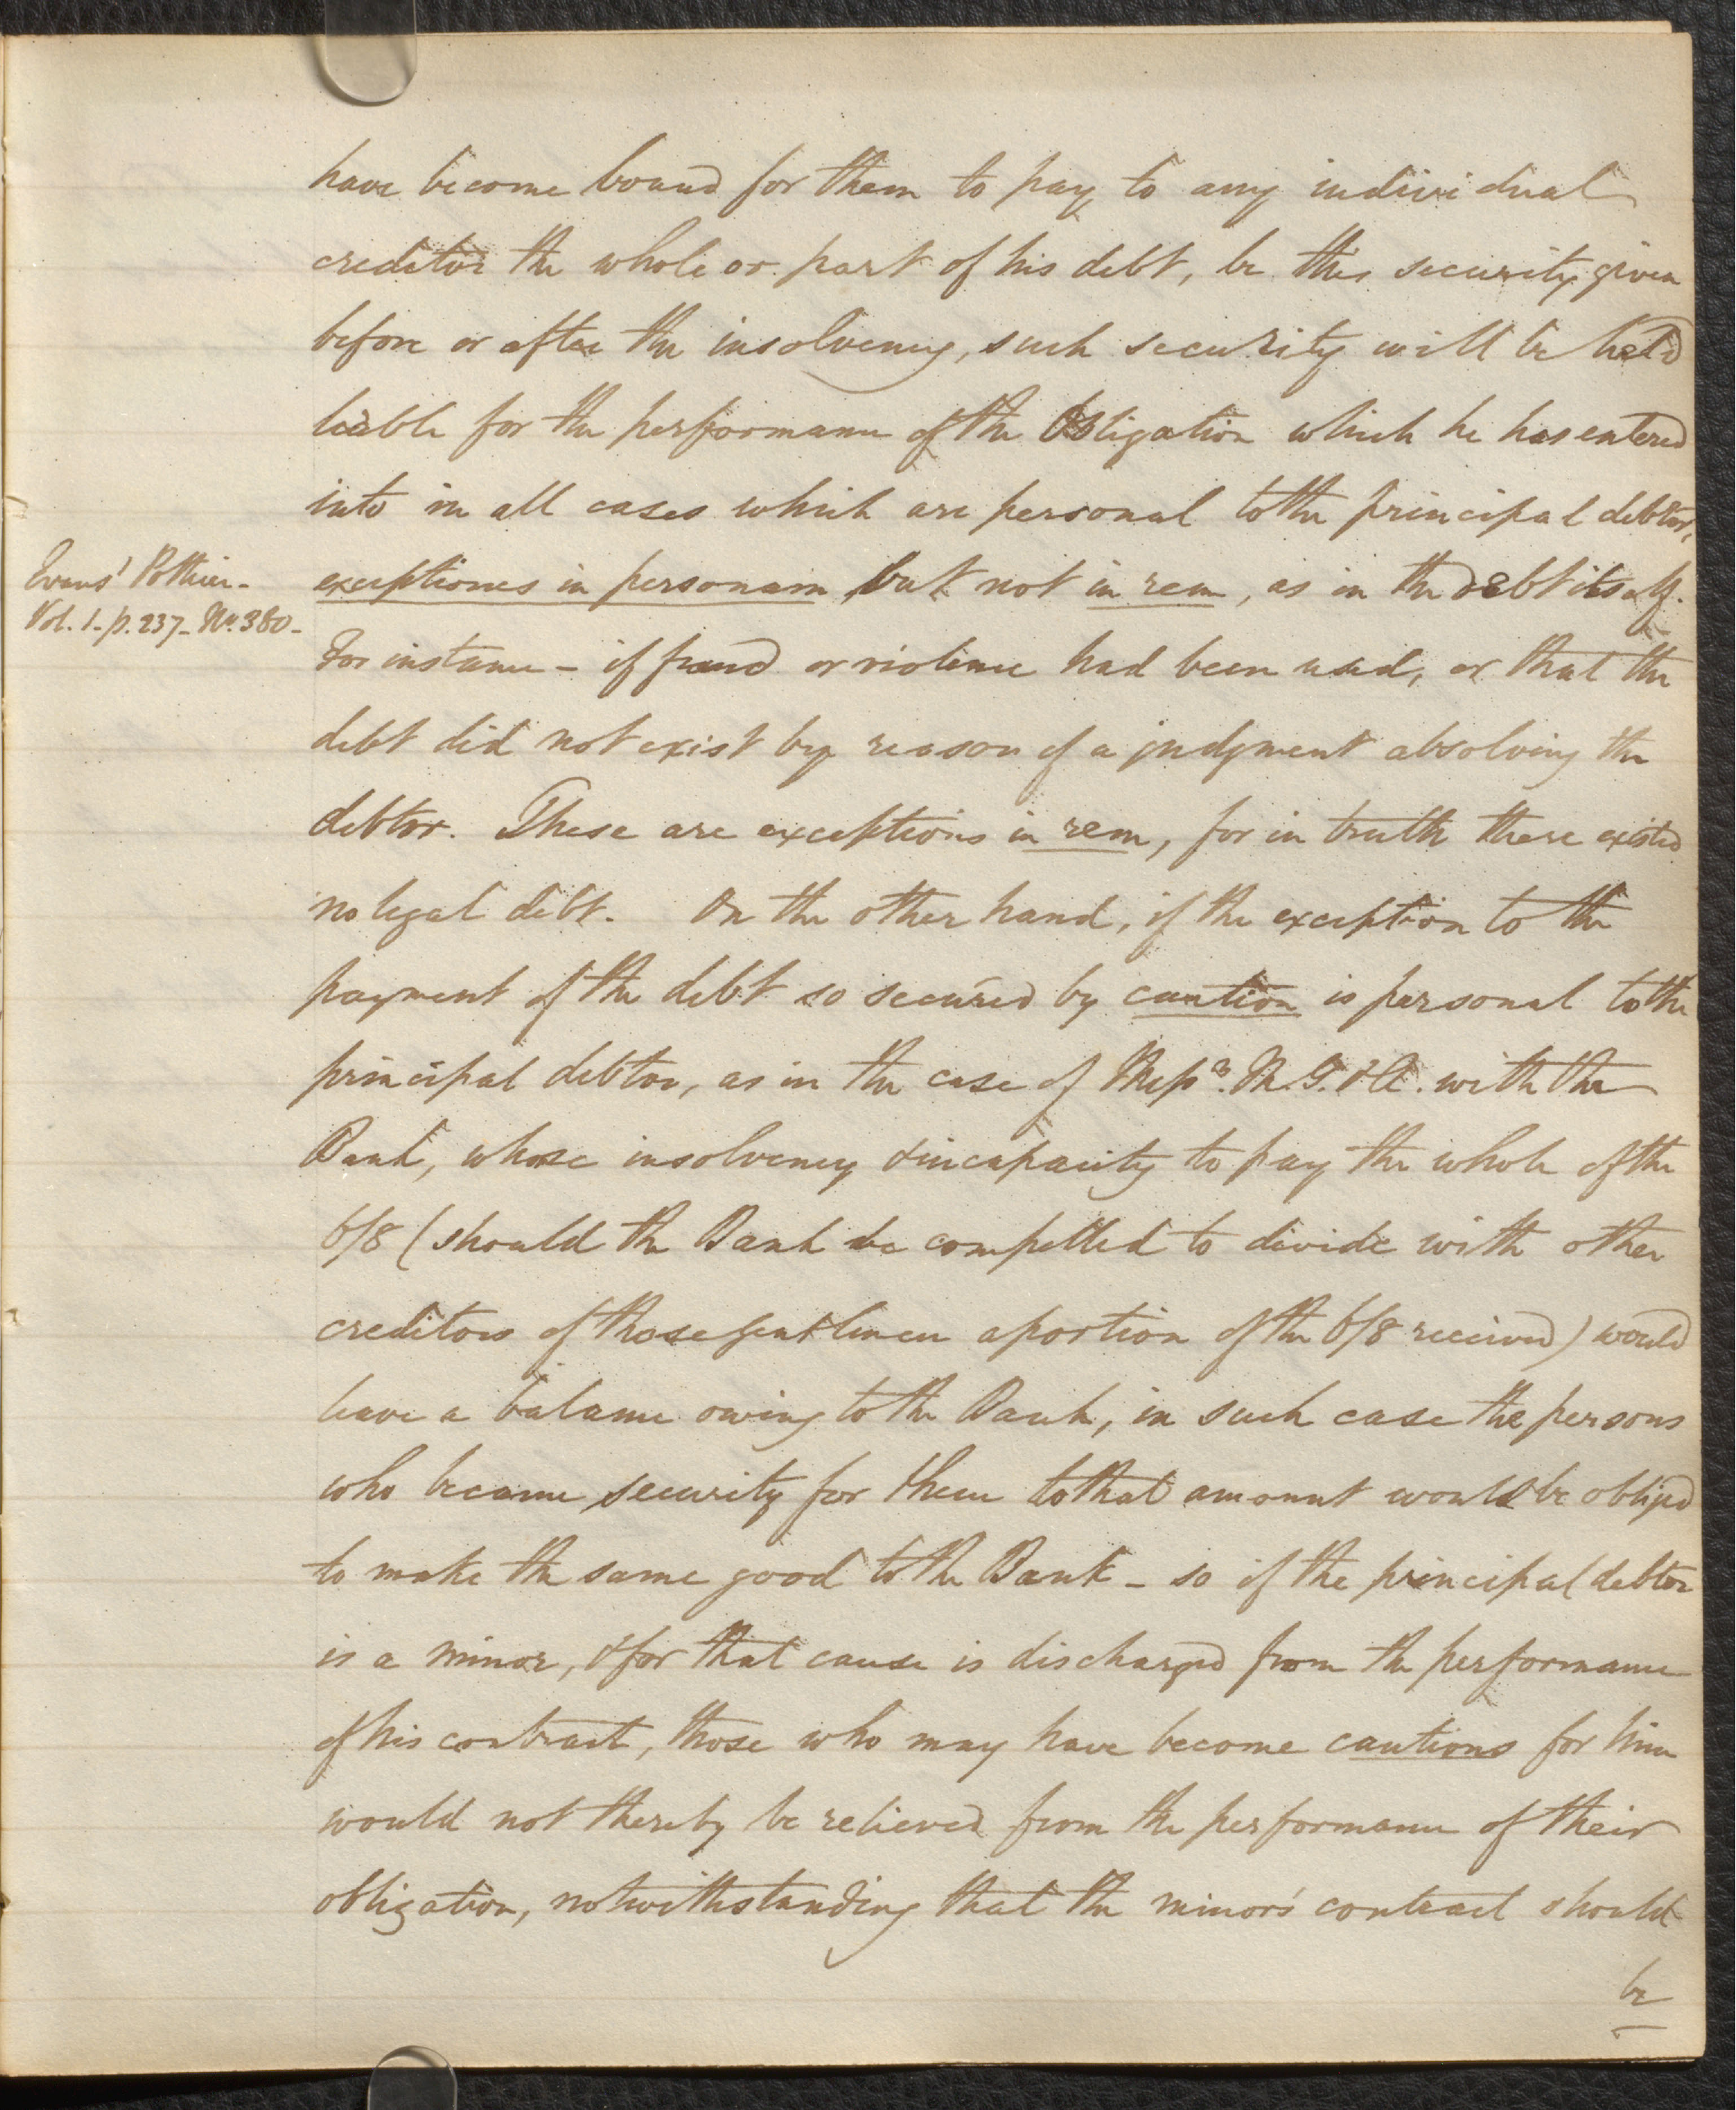 have become bound for them to pay to any individual
creditor the whole or part of his debt, be this security given
before or after the insolvency, such security will be held
liable for the performance of the Obligation which he has entered
into in all cases which are personal to the principal debtor,
Evans' Pothier-
Vol. 1- p. 237- No. 380-
exceptiones in personam but not in rem, as in the debt itself.
For instance - if fraud or violence had been used, or that the
debt did not exist by reason of a judgment absolving the
debtor. These are exceptions in rem, for in truth there existed
no legal debt. On the other hand, if the exception to the
payment of the debt so secured by caution is personal to the
principal debtor, as in the case of Messrs. M. G. & Co. with the
Bank, whose insolvency & incapacity to pay the whole of the
6/8 (should the Bank be compelled to divide with other
creditors of those gentlemen a portion of the 6/8 received) would
leave a balance owing to the Bank, in such case the persons
who became security for them to that amount would be obliged
to make the same good to the Bank - so if the principal debtor
is a minor, & for that cause is discharged from the performance
of his contract, those who may have become cautions for him
would not thereby be relieved from the performance of their
obligation, notwithstanding that the minor's contract should
be